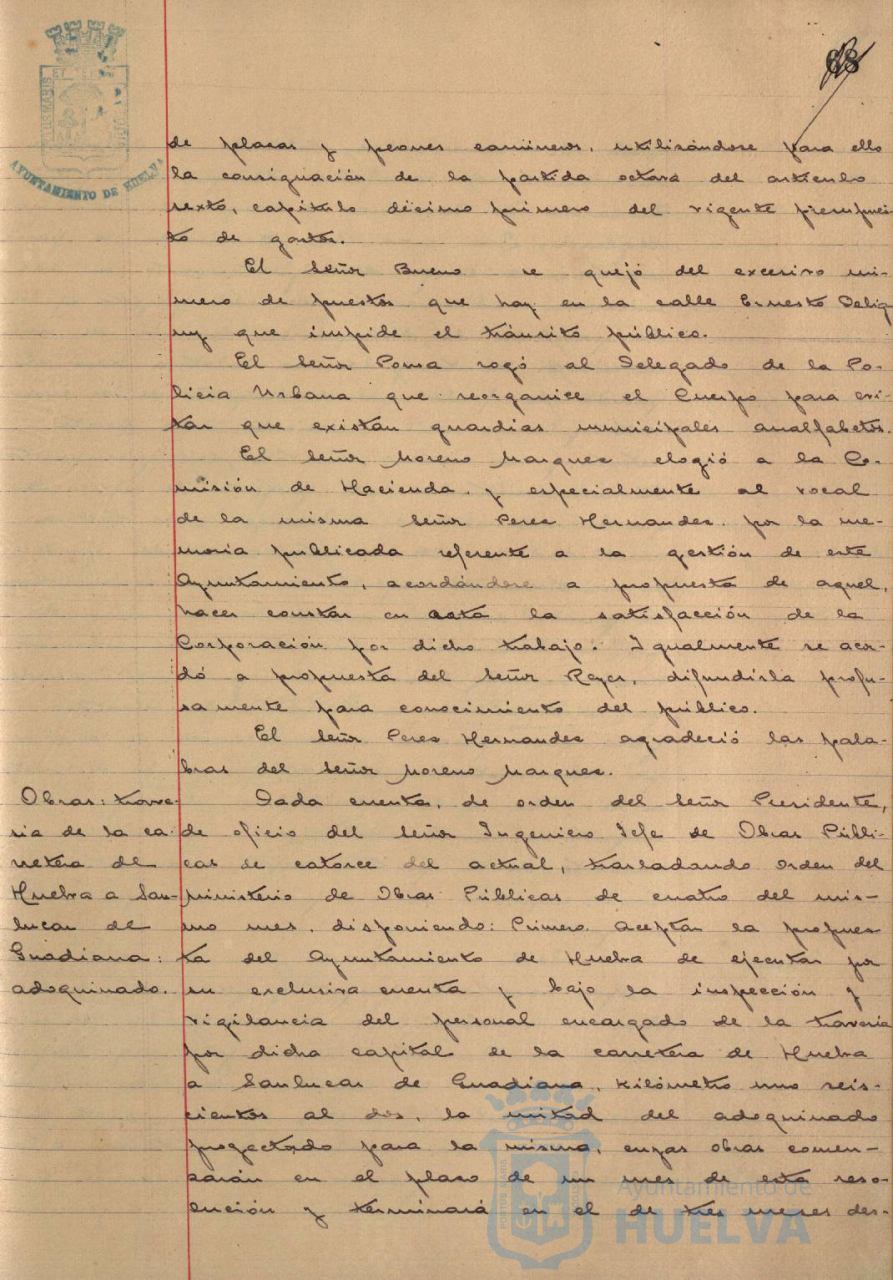 68
AYUNTAMIENTO DE HUELVA
de plazas y peones camineros, utilizándose para ello
la consignación de la partida octava del artículo
sexto, capítulo décimo primero del vigente presupues-
to de gastos.
El Señor Bueno se quejó del excesivo nú-
mero de puestos que hay en la calle Ernesto Delig
ny que impide el tránsito público.
El Señor Ponsa rogó al Delegado de la Po-
licia Urbana que reorganice el Cuerpo para evi-
tar que existan guardias municipales analfabetos.
El Señor Moreno Marquez elogió a la Co-
misión de Hacienda, y especialmente al vocal
de la misma Señor Perez Hernandez, por la me-
moria publicada referente a la gestión de este
Ayuntamiento, acordándose a propuesta de aquel,
hacer constar en acta la satisfacción de la
Corporación por dicho trabajo. Igualmente se acor-
dó a propuesta del Señor Reyes, difundirla profu-
samente para conocimiento del público.
El Señor Perez Hernandez agradeció las pala-
bras del Señor Moreno Marquez.
Obras: trave-
sia de la ca-
rretera de
Huelva a San-
lucar de
Guadiana:
adoquinado.
Dada cuenta, de orden del Señor Presidente,
de oficio del Señor Ingeniero Jefe de Obras Públi-
cas de catorce del actual, trasladando orden del
ministerio de Obras Públicas de cuatro del mis-
mo mes, disponiendo: Primero. Aceptar la propues
ta del Ayuntamiento de Huelva de ejecutar por
su exclusiva cuenta y bajo la inspección y
vigilancia del personal encargado de la travesia
por dicha capital de la carretera de Huelva
a Sanlucar de Guadiana, kilómetro uno seis-
cientos al dos, la mitad del adoquinado
proyectado para la misma, cuyas obras comen-
zarán en el plazo de un mes de esta reso-
lución y terminará en el de tres meses des-
Ayuntamiento de
HUELVA